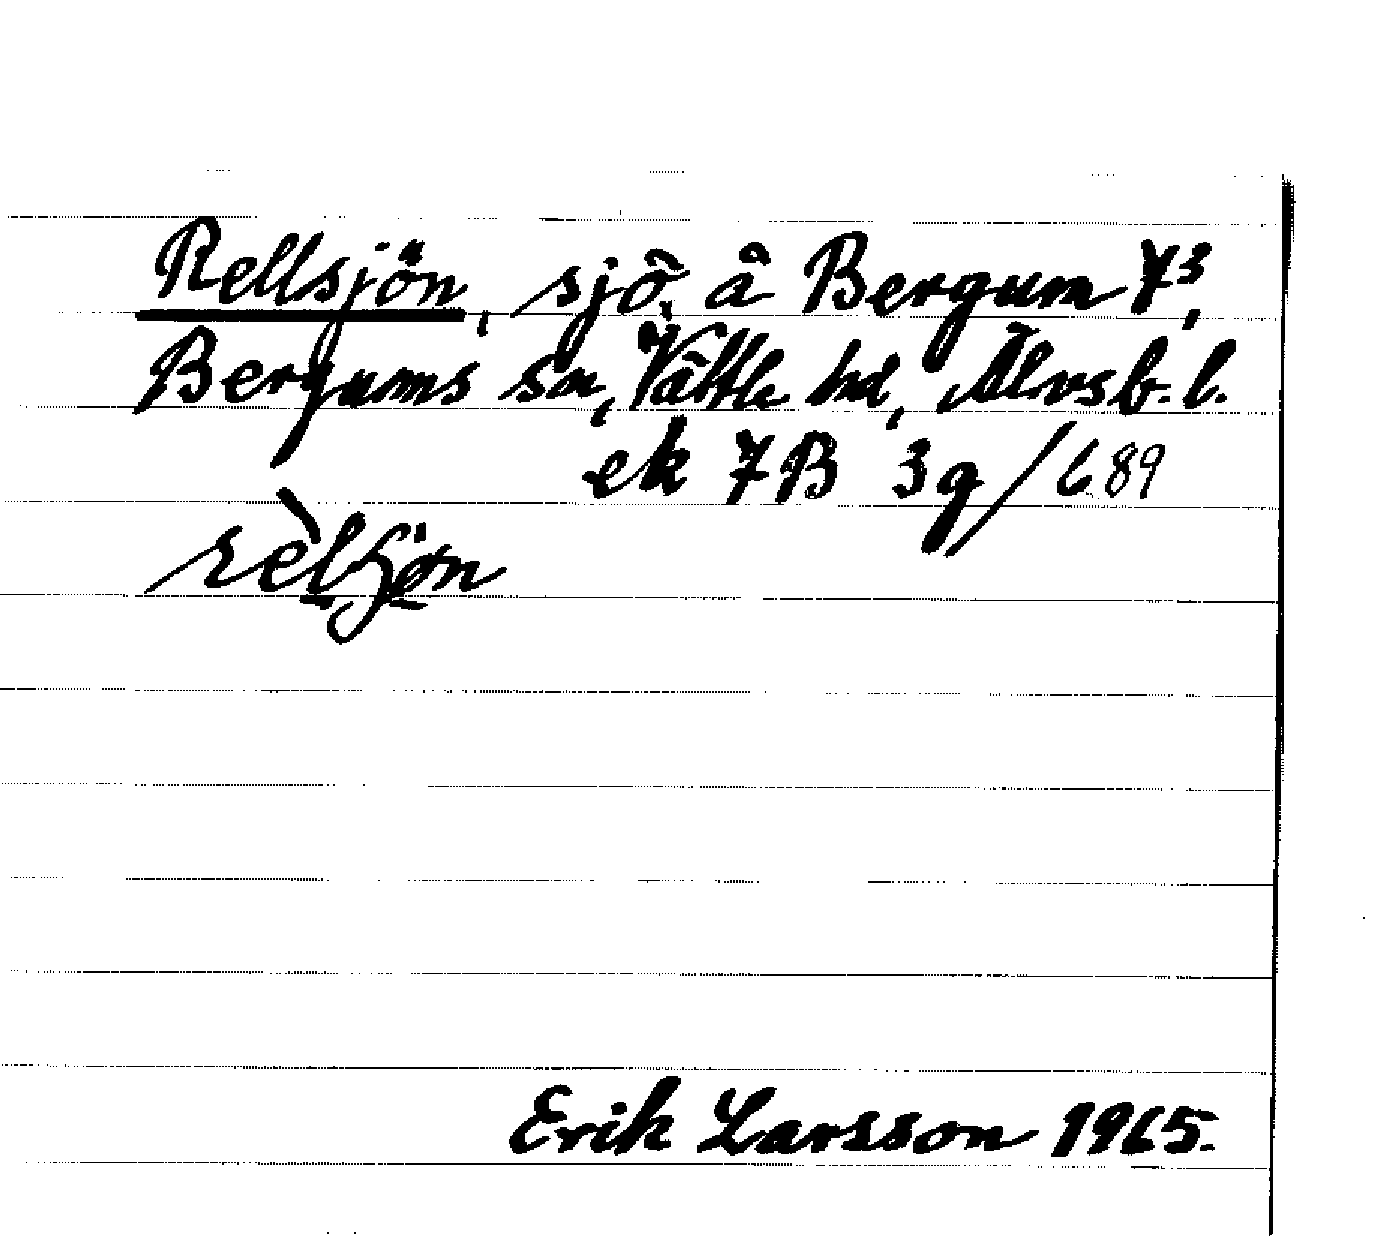 Rellsjön, sjö, å Bergum 7³,
Bergums sn, Vättle hd, Älvsb. l.
ek 7B 3g/689
Erik Larsson 1965.